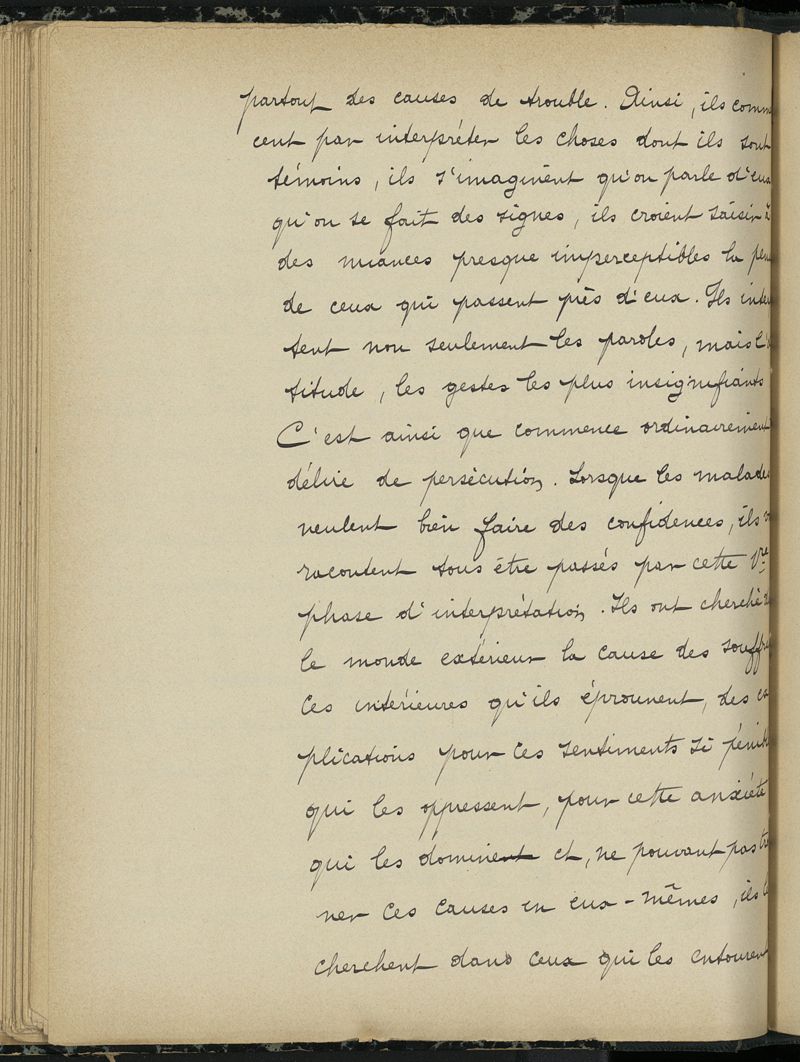 partout des causes de trouble. Ainsi, ils comm
cent par interpréter les choses dont ils sont
témoins, ils s'imaginent qu'on parle d'eux
qu'on se fait des signes, ils croient saisir à
des nuances presque imperceptibles la pen
de ceux qui passent près d'eux. Ils inter
tent non seulement les paroles, mais l'
titude, les gestes les plus insignifiants
C'est ainsi que commence ordinairement
délire de persécution. Lorsque les malade
veulent bien faire des confidences, ils v
racontent tous être passés par cette 1re
phase d'interprétation. Ils ont cherché
le monde extérieur la cause des souffr
ces intérieures qu'ils éprouvent, des
plications pour ces sentiments si pénib
qui les oppressent, pour cette anxiété
qui les domine et, ne pouvant pas
ner ces causes en eux-mêmes, ils
cherchent dans ceux qui les entourent